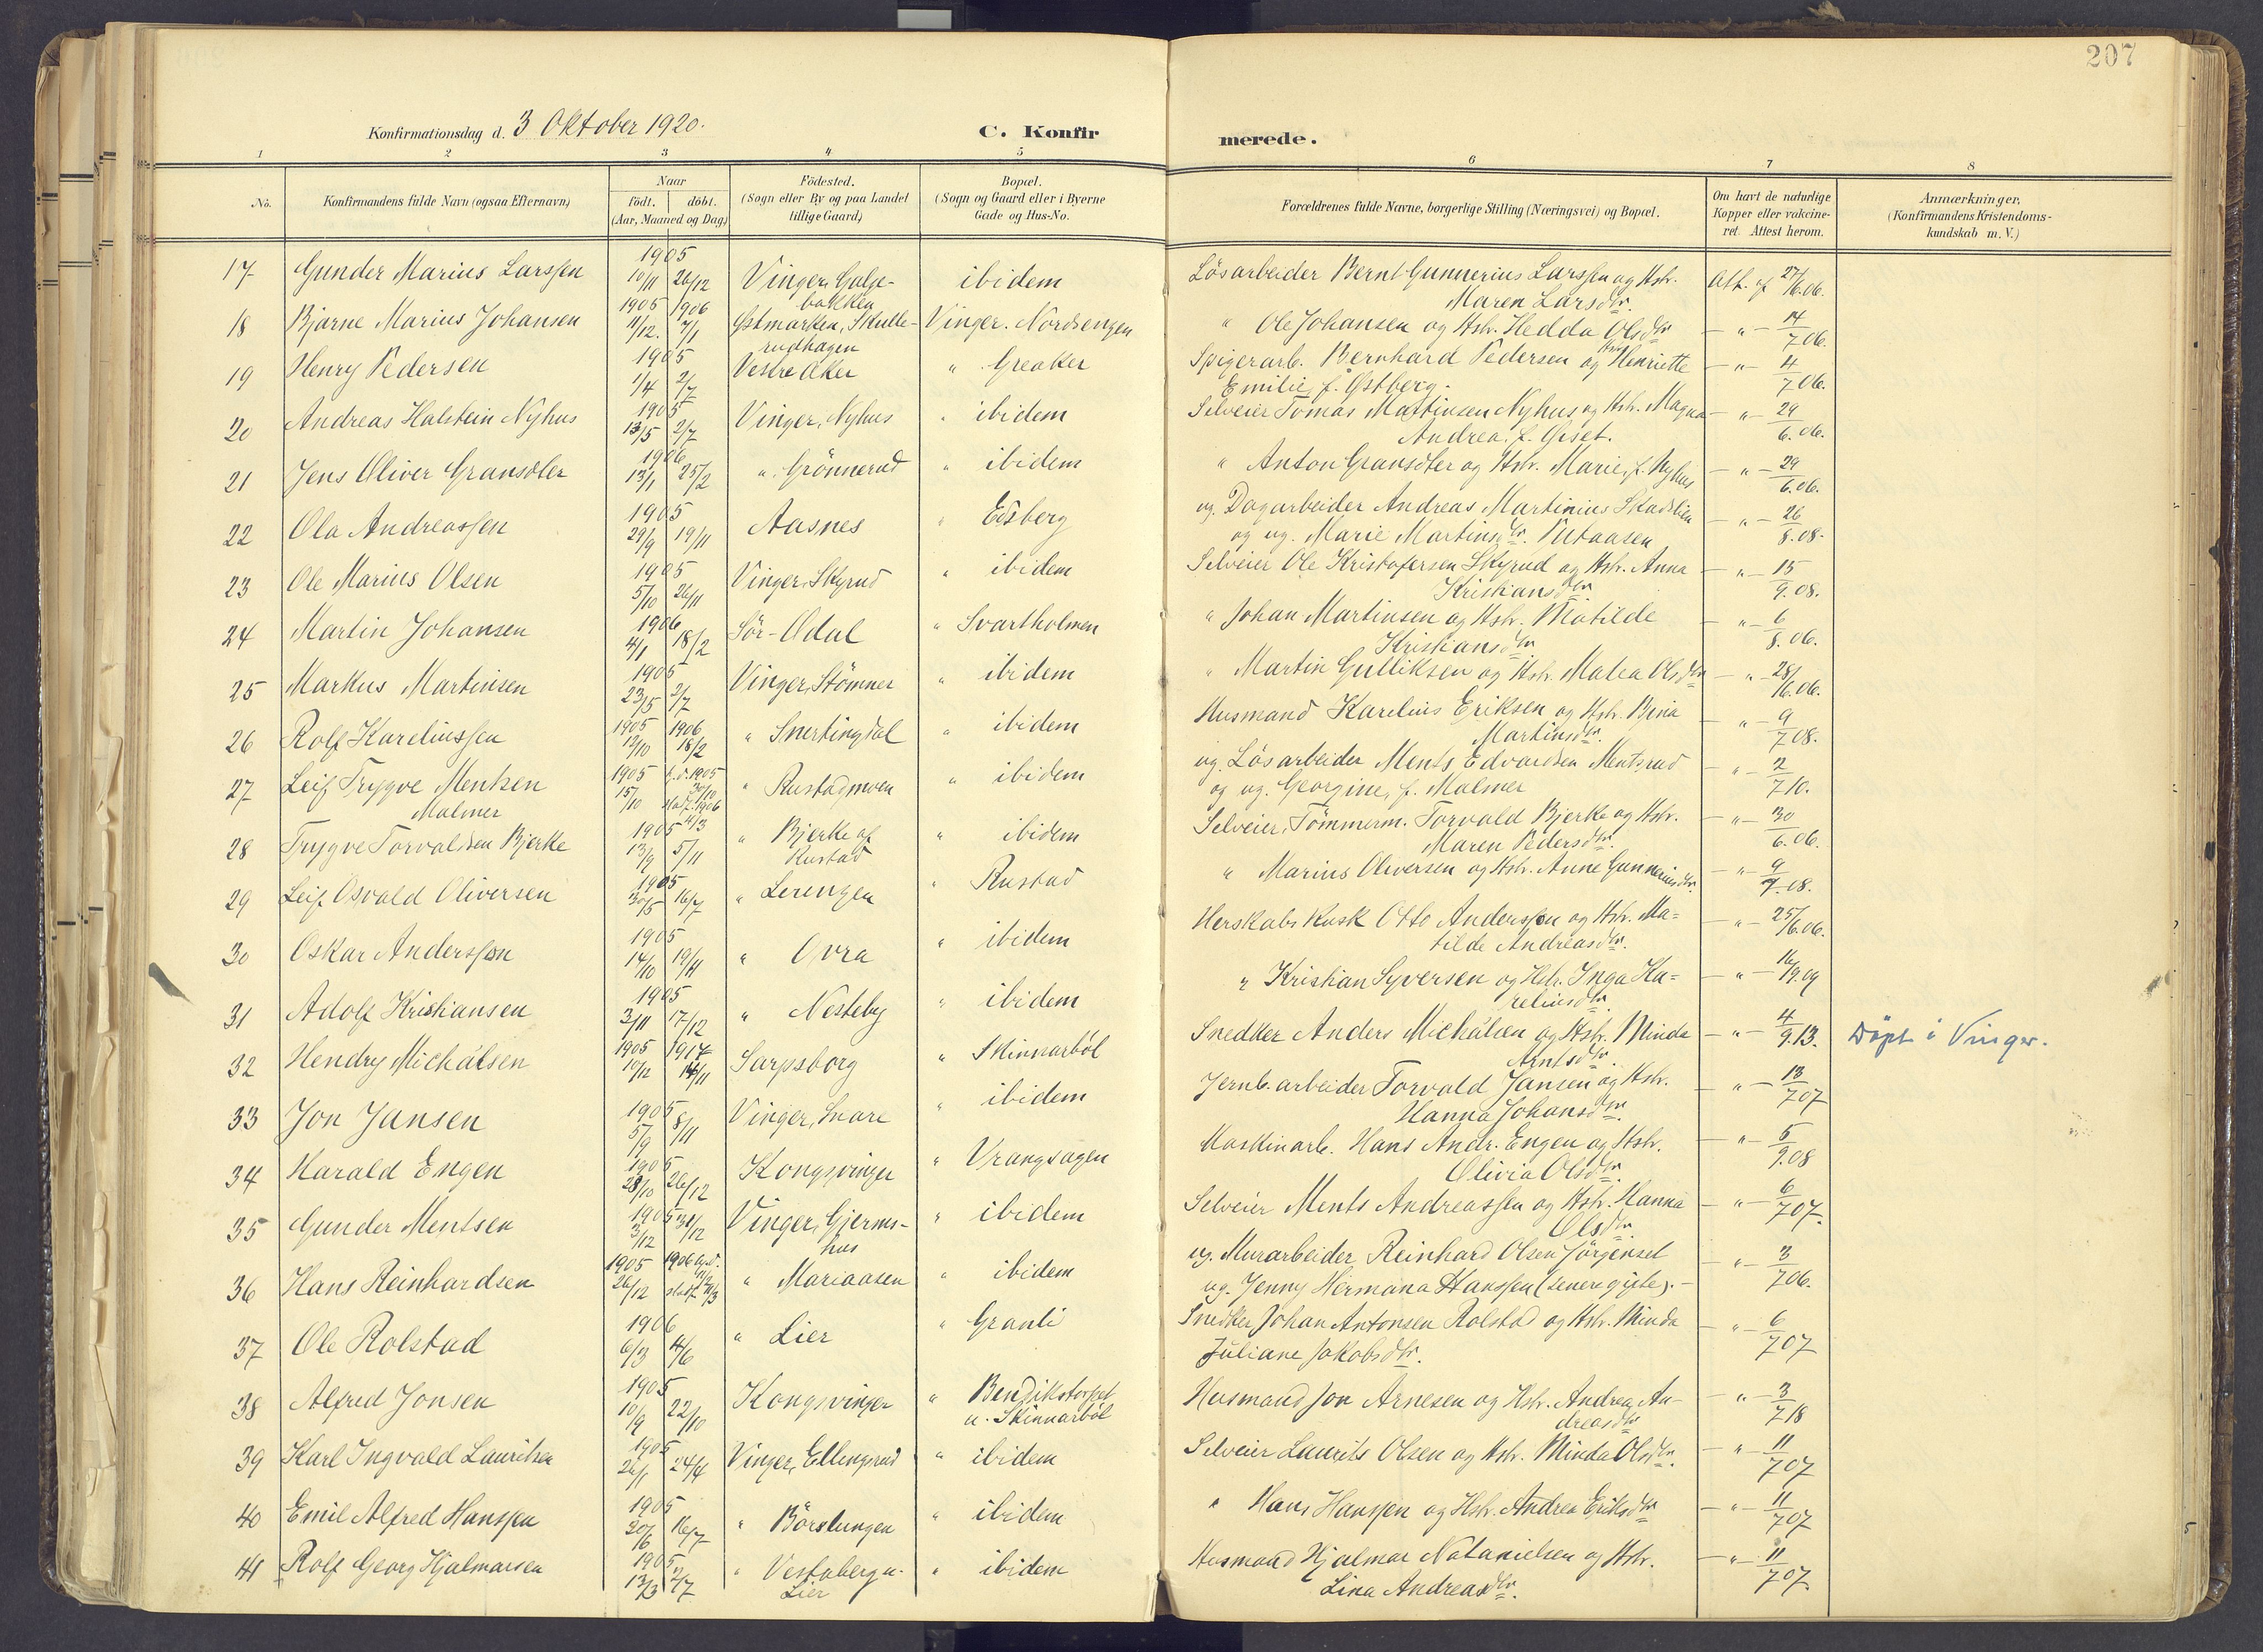 207
Konfirmationsdag d. 3 Oktober 1920.
C. Konfirmerede.
1 2 3 4 5 6 7 8
No. Konfirmandens fulde Navn (ogsaa Efternavn) Naar födt. döbt. (Aar, Maaned og Dag) Födested. (Sogn eller By og paa Landet tillige Gaard) Bopæl. (Sogn og Gaard eller i Byerne Gade og Hus-No. Forældrenes fulde Navne, borgerlige Stilling (Næringsvei) og Bopæl. Om havt de naturlige Kopper eller vakcineret. Attest herom. Anmærkninger, (Konfirmandens Kristendomskundskab m. V.)
17 Gunder Marius Larssen 1905 10/11 26/12 Vinger, Galgebakken ibidem Lösarbeider Bernt Gunnerius Larssen og Hstr. Maren Larsdtr. Att. af 27/6.06.
18 Bjarne Marius Johansen 1905 11/12. 1906 7/1 Østmarken, Skullerudhagen Vinger. Nordsengen " Ole Johansen og Hstr. Hedda Olsdtr - " - 14/7 06.
19 Henry Pedersen 1905 1/4 2/7 Vestre Aker " Greaker Spigerarb. Bernhard Pedersen og Hstr. Henriette Emilie, f. Østberg. - " - 4/7 06.
20 Andreas Halstein Nyhus 1905 13/5 2/7 Vinger, Nyhus " ibidem Selveier Tomas Martinsen Nyhus og Hstr. Magna Andrea, f. Giset. - " - 29/6.06.
21 Jens Oliver Gransöter 1906 13/1 25/2 " Grönnerud " ibidem " Anton Gransöter og Hstr. Marie, f. Nyhus - " - 29/6.06.
22 Ola Andreassen 1905 29/9 19/11 Aasnes " Edsberg ug. Dagarbeider Andreas Martinius Skadslien og ug. Marie Martinsdtr. - " - 26/8.08.
23 Ole Marius Olsen 1905 5/10 26/11 Vinger, Skyrud " ibidem Selveier Ole Kristofersen Skyrud og Hstr. Anna Kristiansdtr - " - 15/9.08.
24 Martin Johansen 1906 4/1 18/2 Sör-Odal " Svartholmen " Johan Martinsen og Hstr. Matilde Kristiansdtr - " - 6/8.06.
25 Markus Martinsen 1905 23/5 2/7 Vinger, Stömner " ibidem " Martin Gulliksen og Hstr. Malea Olsdtr - " - 28/6.06.
26 Rolf Kareliussen 1905 12/10 1906 18/2 " Snertingdal " ibidem Husmand Karelius Eriksen og Hstr. Bina Martinsdtr. - " - 9/7 08.
27 Leif Trygve Mentsen Malmer 1905 15/10 h.d. 1905 30/10 stadf. 1906 11/3 " Rustadmoen " ibidem ug. Lösarbeider Ments Edvardsen Mentsrud og ug. Georgine, f. Malmer - " - 2/7 10.
28 Trygve Torvaldsen Bjerke 1905 13/9 5/11 " Bjerke af Rustad " ibidem Selveier, Tömmerm. Torvald Bjerke og Hstr. Maren Pedersdtr. - " - 30/6.06.
29 Leif Osvald Oliversen 1905 30/5 16/7 " Lerengen " Rustad " Marius Oliversen og Hstr. Anne Gunneriusdtr. - " - 9/7.08.
30 Oskar Anderssøn 1905 14/10 19/11 " Ovra " ibidem Herskabs Kusk Otto Anderssøn og Hstr. Matilde Andreasdtr. - " - 25/6.06.
31 Adolf Kristiansen 1905 3/11 17/12 " Nesteby " ibidem " Kristian Syversen og Hstr. Inga Kareliusdtr. - " - 16/9.09
32 Hendry Michälsen 1905 10/12 1917 14/11 Sarpsborg " Skinnarböl Snedker Anders Michälsen og Hstr. Minda Arntsdtr. - " - 4/9.13. Döpt i Vinger.
33 Jon Jansen 1905 5/9 8/11 Vinger, Snare " ibidem Jernb. arbeider Torvald Jansen og Hstr. Hanna Johansdtr. - " - 13/7 07
34 Harald Engen 1905 28/10 26/12 Kongsvinger " Vrangsagen Maskinarb. Hans Andr. Engen og Hstr. Olivia Olsdtr. - " - 5/9.08
35 Gunder Mentsen 1905 3/12 31/12 Vinger, Gjermshus " ibidem Selveier Ments Andreassen og Hstr. Hanna Olsdtr. - " - 6/7 07.
36 Hans Reinhardsen 1905 26/12 1906 " Mariaasen " ibidem ug. Murarbeider Reinhard Olsen Jörgenset ug. Jenny Hermana Hanssen (senere gifte). - - " - 3/7 06.
37 Ole Rolstad 1906 6/3 4/6 " Lier " Granli Snedker Johan Antonsen Rolstad og Hstr. Minda Juliane Jakobsdtr. - " - 6/7 07
38 Alfred Jonsen 1905 10/9 22/10 Kongsvinger " Bendikstorpet u. Skinnarböl Husmand Jon Arnesen og Hstr. Andrea Andreasdtr - " - 3/7 18
39 Karl Ingvald Lauritsen 1905 26/1 24/4 Vinger, Ellingsrud " ibidem Selveier Laurits Olsen og Hstr. Minda Olsdtr. - " - 11/7 07
40 Emil Alfred Hanssen 1905 20/6 16/7 " Börslungen " ibidem " Hans Hanssen og Hstr. Andrea Eriksdtr - " - 11/7 07
41 Rolf Georg Hjalmarsen 1905 13/3 2/7 " Vestaberg u. Lier " ibidem Husmand Hjalmar Natanielsen og Hstr. Lina Andreasdtr. - " - 11/7 07